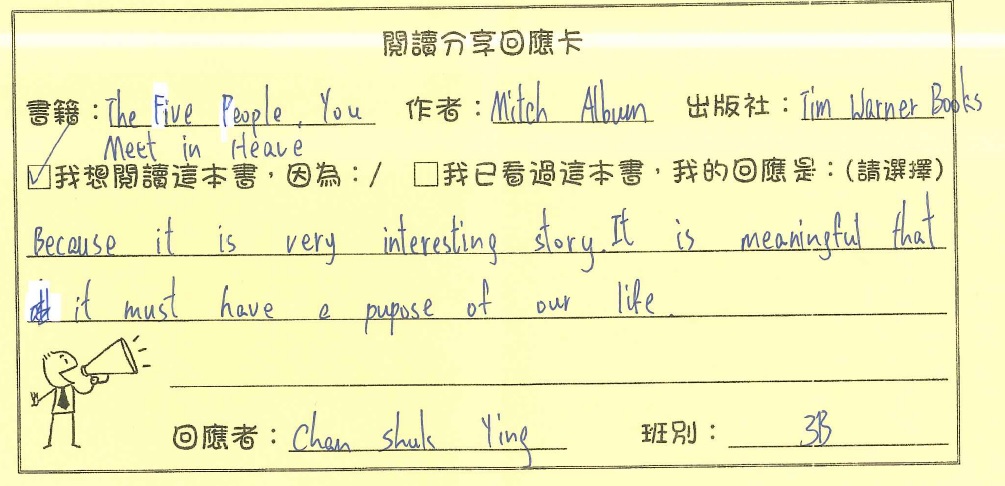 閱讀分享回應卡
書籍：The Five People You 作者：Mitch Album 出版社：Tim Warner Books
Meet in Heave
☑我想閱讀這本書，因為：/ □我已看過這本書，我的回應是：(請選擇)
Because it is very interesting story. It is meaningful that
it must have a pupose of our life.
回應者：Chan Ying 班別：3B